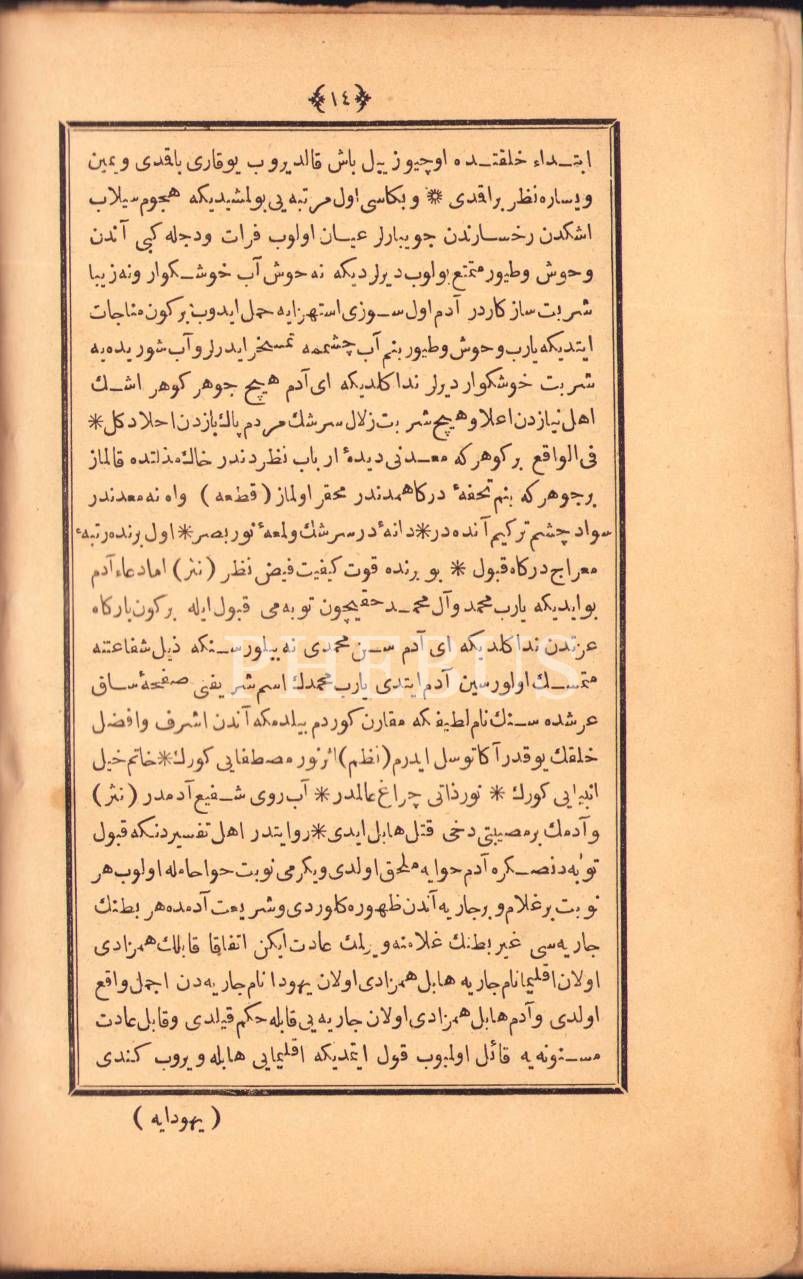 ﴿١٤﴾
ابتداء خلقتده اوچيوز ييل باش قالديروب يوقارى باقدى و يمين
و يساره نظر براقدى * و بكاسى اول مرتبه يى بولمشيديكه هجوم سيلاب
اشكدن رخسارندن جويبارلر عيان اولوب فرات ودجله كبى آندن
وحوش وطيور متمتع بولوب ديرلرديكه نه خوش آب خوشكوار ونه زيبا
شربت سازكاردر آدم اول سوزى استهزايه حمل ايدوب بركون مناجات
ايتديكه يارب وحوش وطيور بنم آب چشممه تمسخر ايدرلر و آب شوريده يه
شربت خوشكوار ديرلر ندا كلديكه اى آدم هيچ جوهر كوهر اشك
اهل نيازدن اعلا و هيچ شربت زلال سرشك مردم پاك بازدن احلا دكل *
فى الواقع بر كوهر كه معدنى ديدهٔ ارباب نظردندر خاك مذلتده قالماز
برجوهر كه بنم تحفهٔ دركاهمدندر محقر اولماز (قطعه) واه نه معدندر
سواد چشم تركيم آنده در * دانهٔ در سرشك ولمعهٔ نور بصر * اول برنده رتبهٔ
معراج دركاه قبول * بو برنده قوت كيفيت فيض نظر (نثر) اما دعاء آدم
بوايديكه يارب محمد وآل محمد حقيچون توبه مى قبول ايله بركون باركاه
عزتدن ندا كلديكه اى آدم سن محمدى نه بيلورسنكه ذيل شفاعتنه
متمسك اولورسين آدم ايتدى يارب محمدك اسم شريفنى صفحهٔ ساق
عرشده سنك نام لطيفكه مقارن كوردم بيلدمكه آندن اشرف وافضل
خلقك يوقدر آكا توسل ايدرم (نظم) اثر نور مصطفايى كورك * خاتم خيل
انبيايى كورك * نور ذاتى چراغ عالمدر * آب روى شفيع آدمدر (نثر)
و آدمك بر مصيبتى دخى قتل هابل ايدى * روايتدر اهل تفسيردنكه قبول
توبه دنصكره آدم حوايه ملحق اولدى ويكرمى نوبت حوا حامله اولوب هر
نوبت بر غلام و برجاريه آندن ظهوره كلوردى و شريعت آدمده هر بطنك
جاريه سى غير بطنك غلامنه ويرلمك عادت ايكن اتفاقا قابلك همزادى
اولان اقليما نام جاريه هابل همزادى اولان يهودا نام جاريه دن اجمل واقع
اولدى و آدم هابل همزادى اولان جاريه يى قابله حكم قيلدى و قابل عادت
مسنونه يه قائل اولميوب قول ايتمديكه اقليمايى هابله ويروب كندى
(يهودايه)